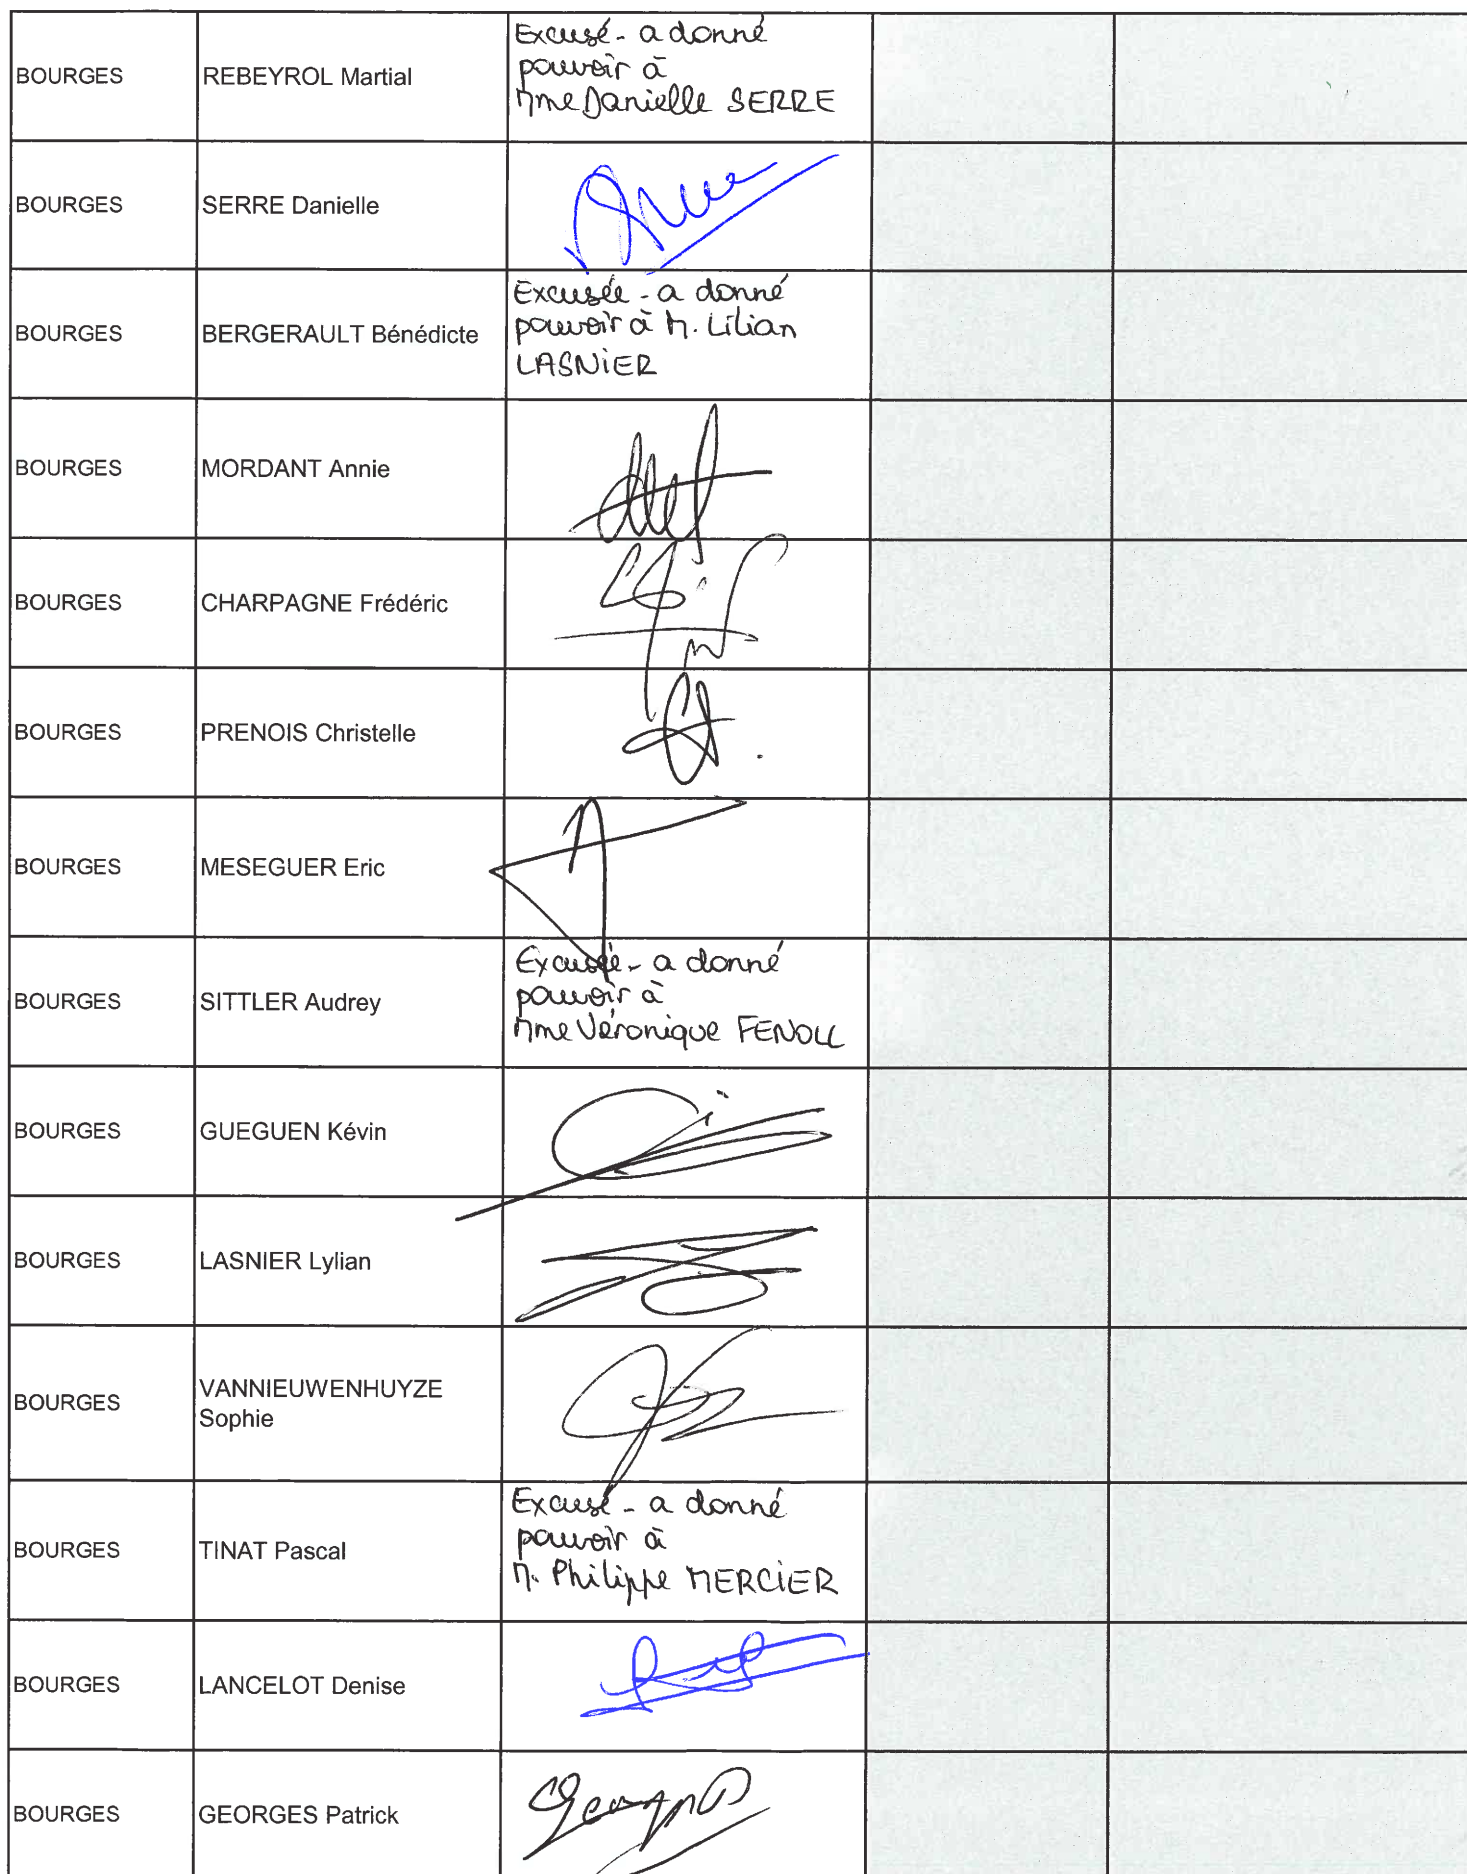 BOURGES
REBEYROL Martial
Excusé - a donné
pouvoir à
Mme Danielle SERRE
BOURGES
SERRE Danielle
BOURGES
BERGERAULT Bénédicte
Excusée - a donné
pouvoir à M. Lilian
LASNIER
BOURGES
MORDANT Annie
BOURGES
CHARPAGNE Frédéric
BOURGES
PRENOIS Christelle
BOURGES
MESEGUER Eric
BOURGES
SITTLER Audrey
Excusée - a donné
pouvoir à
Mme Véronique FENOLL
BOURGES
GUEGUEN Kévin
BOURGES
LASNIER Lylian
BOURGES
VANNIEUWENHUYZE
Sophie
BOURGES
TINAT Pascal
Excusé - a donné
pouvoir à
M. Philippe MERCIER
BOURGES
LANCELOT Denise
BOURGES
GEORGES Patrick